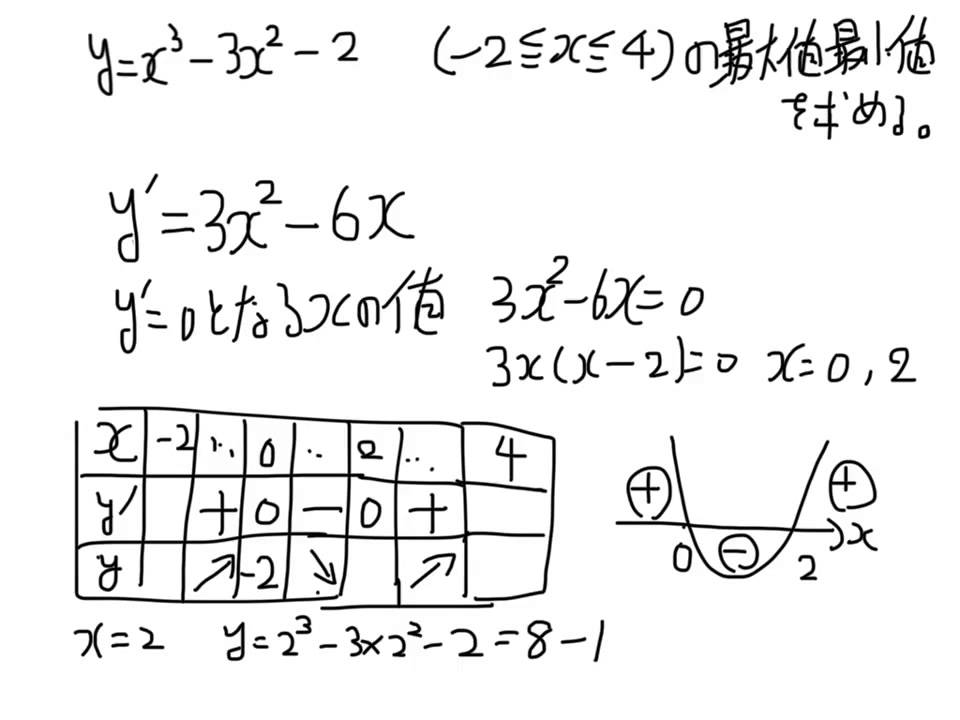 y=x³-3x²-2 (-2≦x≦4)の最大値最小値
を求める。
y'=3x²-6x
y'=0となるxの値 3x²-6x=0
3x(x-2)=0 x=0,2
x -2 … 0 … 2 … 4
y' + 0 - 0 +
y ↗ -2 ↘ ↗
+ - + 0 2 x
x=2 y=2³-3×2²-2=8-1